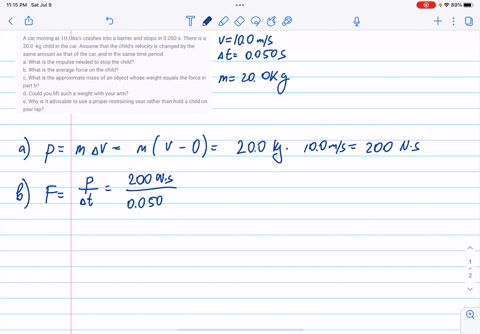 11:15 PM Sat Jul 9
89%
A car moving at 10.0m/s crashes into a barrier and stops in 0.050 s. There is a
20.0 -kg child in the car. Assume that the child's velocity is changed by the
same amount as that of the car, and in the same time period.
a. What is the impulse needed to stop the child?
b. What is the average force on the child?
c. What is the approximate mass of an object whose weight equals the force in
part b?
d. Could you lift such a weight with your arm?
e. Why is it advisable to use a proper restraining seat rather than hold a child on
your lap?
V=10.0 m/s
Δt= 0.050s
m= 20.0Kg
a) P= m ΔV= m( V - 0)= 20.0 kg. 10.0 m/s= 200 N.s
b) F= P/Δt = 200 N.s/0.050
1
2